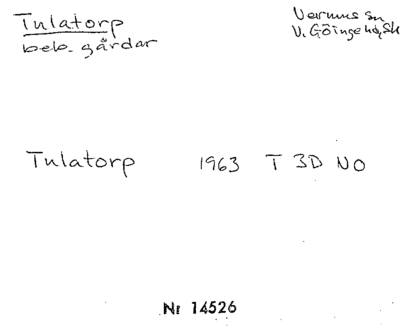 Tulatorp
beb. gårdar
Vermus sn
V. Göinge hd, Sk
Tulatorp 1963 T 3D NO
Nr 14526